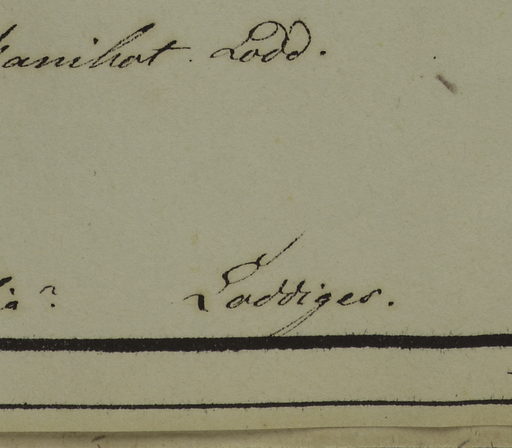 Manihot Lodd.
Loddiges.